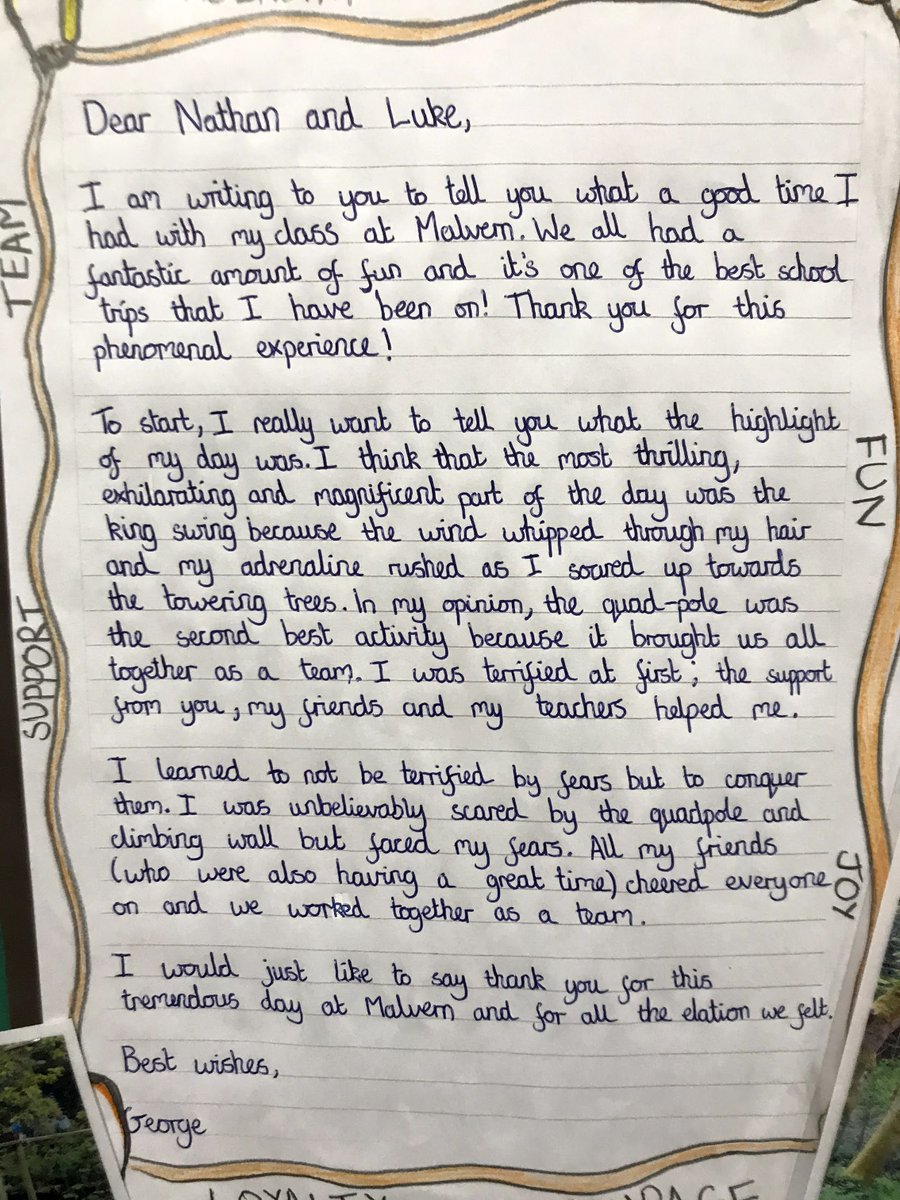 Dear Nathan and Luke,
I am writing to you to tell you what a good time I
had with my class at Malvern. We all had a
fantastic amount of fun and it's one of the best school
trips that I have been on! Thank you for this
phenomenal experience!
To start, I really want to tell you what the highlight
of my day was. I think that the most thrilling,
exhilarating and magnificent part of the day was the
king swing because the wind whipped through my hair
and my adrenaline rushed as I soared up towards
the towering trees. In my opinion, the quad-pole was
the second best activity because it brought us all
together as a team. I was terrified at first; the support
from you, my friends and my teachers helped me.
I learned to not be terrified by fears but to conquer
them. I was unbelievably scared by the quadpole and
climbing wall but faced my fears. All my friends
(who were also having a great time) cheered everyone
on and we worked together as a team.
I would just like to say thank you for this
tremendous day at Malvern and for all the elation we felt.
Best wishes,
George
TEAM
SUPPORT
FUN
JOY
LOYALTY